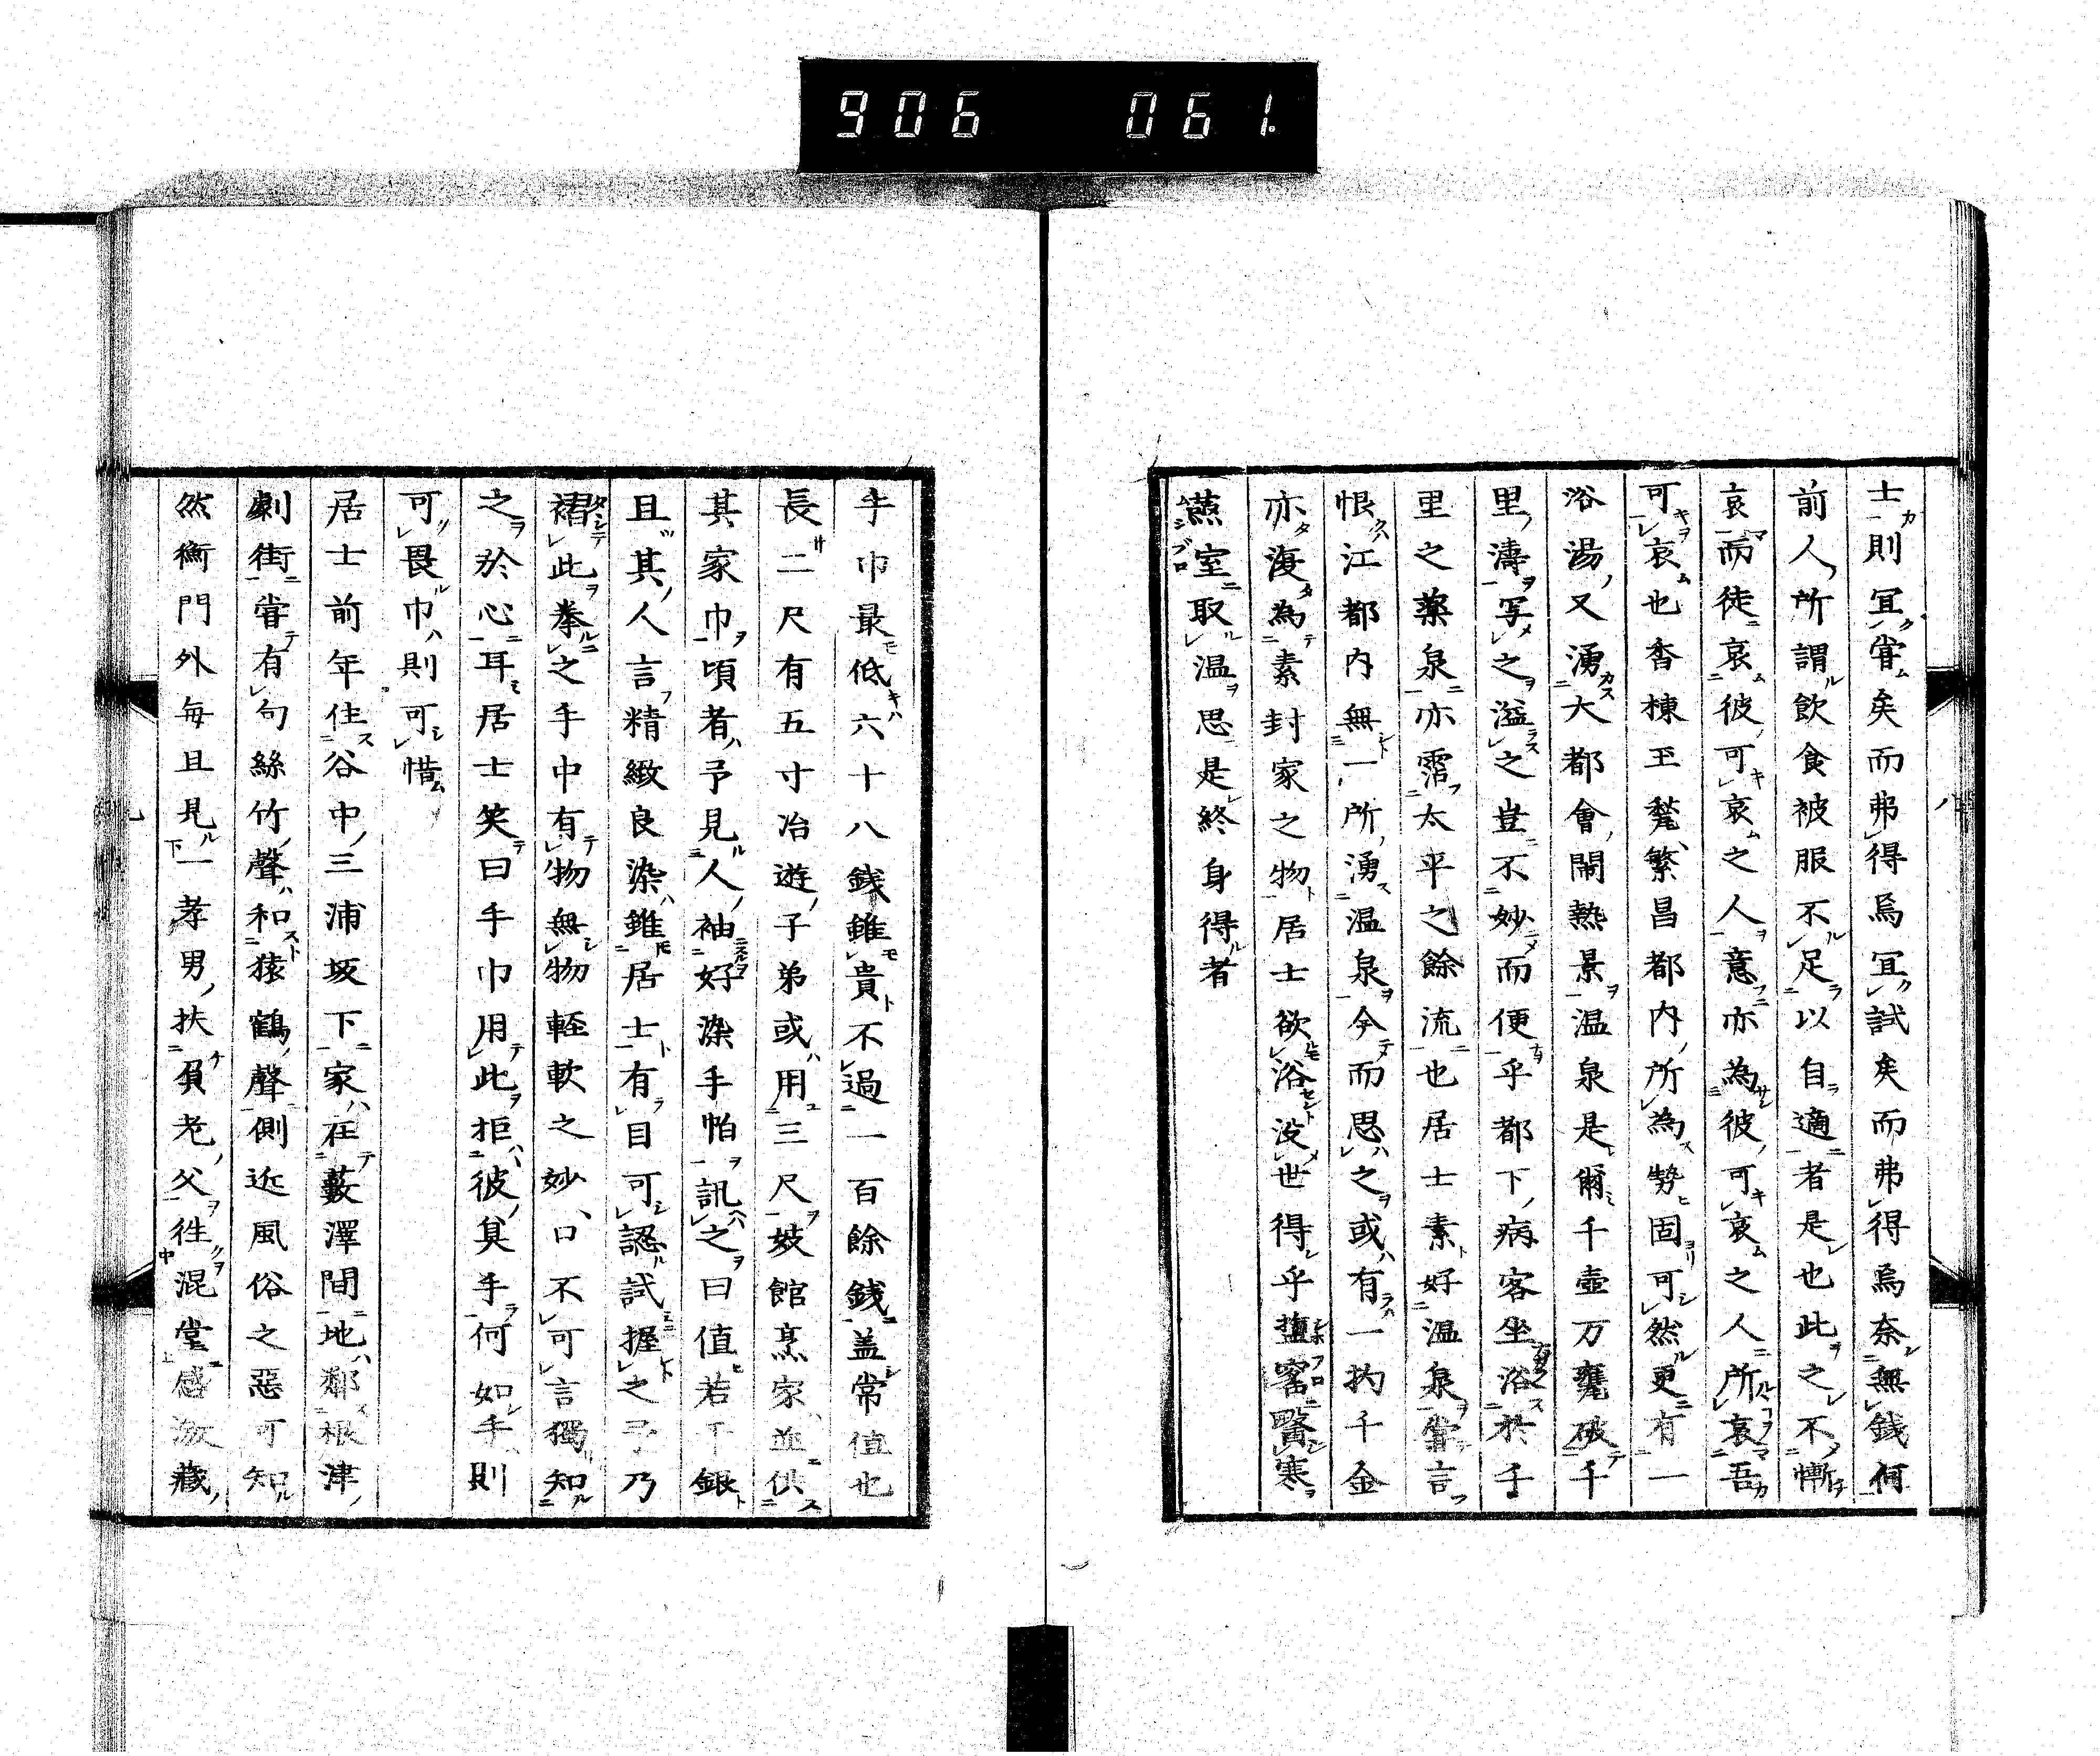 906 061.
士則冝甞矣而弗得焉冝試矣而弗得焉奈無銭何
前人所謂飲食被服不足以自適者是也此之不慚
哀而徒哀彼可哀之人意亦為彼可哀之人所哀吾
可哀也杳棟玉甃繁昌都内所為勢固可然更有一
浴湯又湧大都會閙熱景温泉是爾千壺万甕破千
里濤写之溢之豈不妙而便乎都下病客坐浴於千
里之薬泉亦霑太平之餘流也居士素好温泉甞言
恨江都内無一所湧温泉今而思之或有一扚千金
亦復為素封家之物居士欲浴没世得乎塩窰醫寒
蒸室取温思是終身得者
手巾最低六十八銭雖貴不過一百餘銭盖常值也
長二尺有五寸冶遊子弟或用三尺妓館烹家並供
其家巾頃者予見人袖好染手帕訊之曰值若干銀
且其人言精緻良染雖居士有目可認試握之予乃
褶此拳之手中有物無物軽軟之妙口不可言獨知
之於心耳居士笑曰手巾用此拒彼臭手何如手則
可畏巾則可惜
居士前年住谷中三浦坂下家在藪澤間地鄰根津
劇街甞有句絲竹聲和猿鶴聲側近風俗之惡可知
然衡門外毎且見一孝男扶負老父徃混堂感激藏